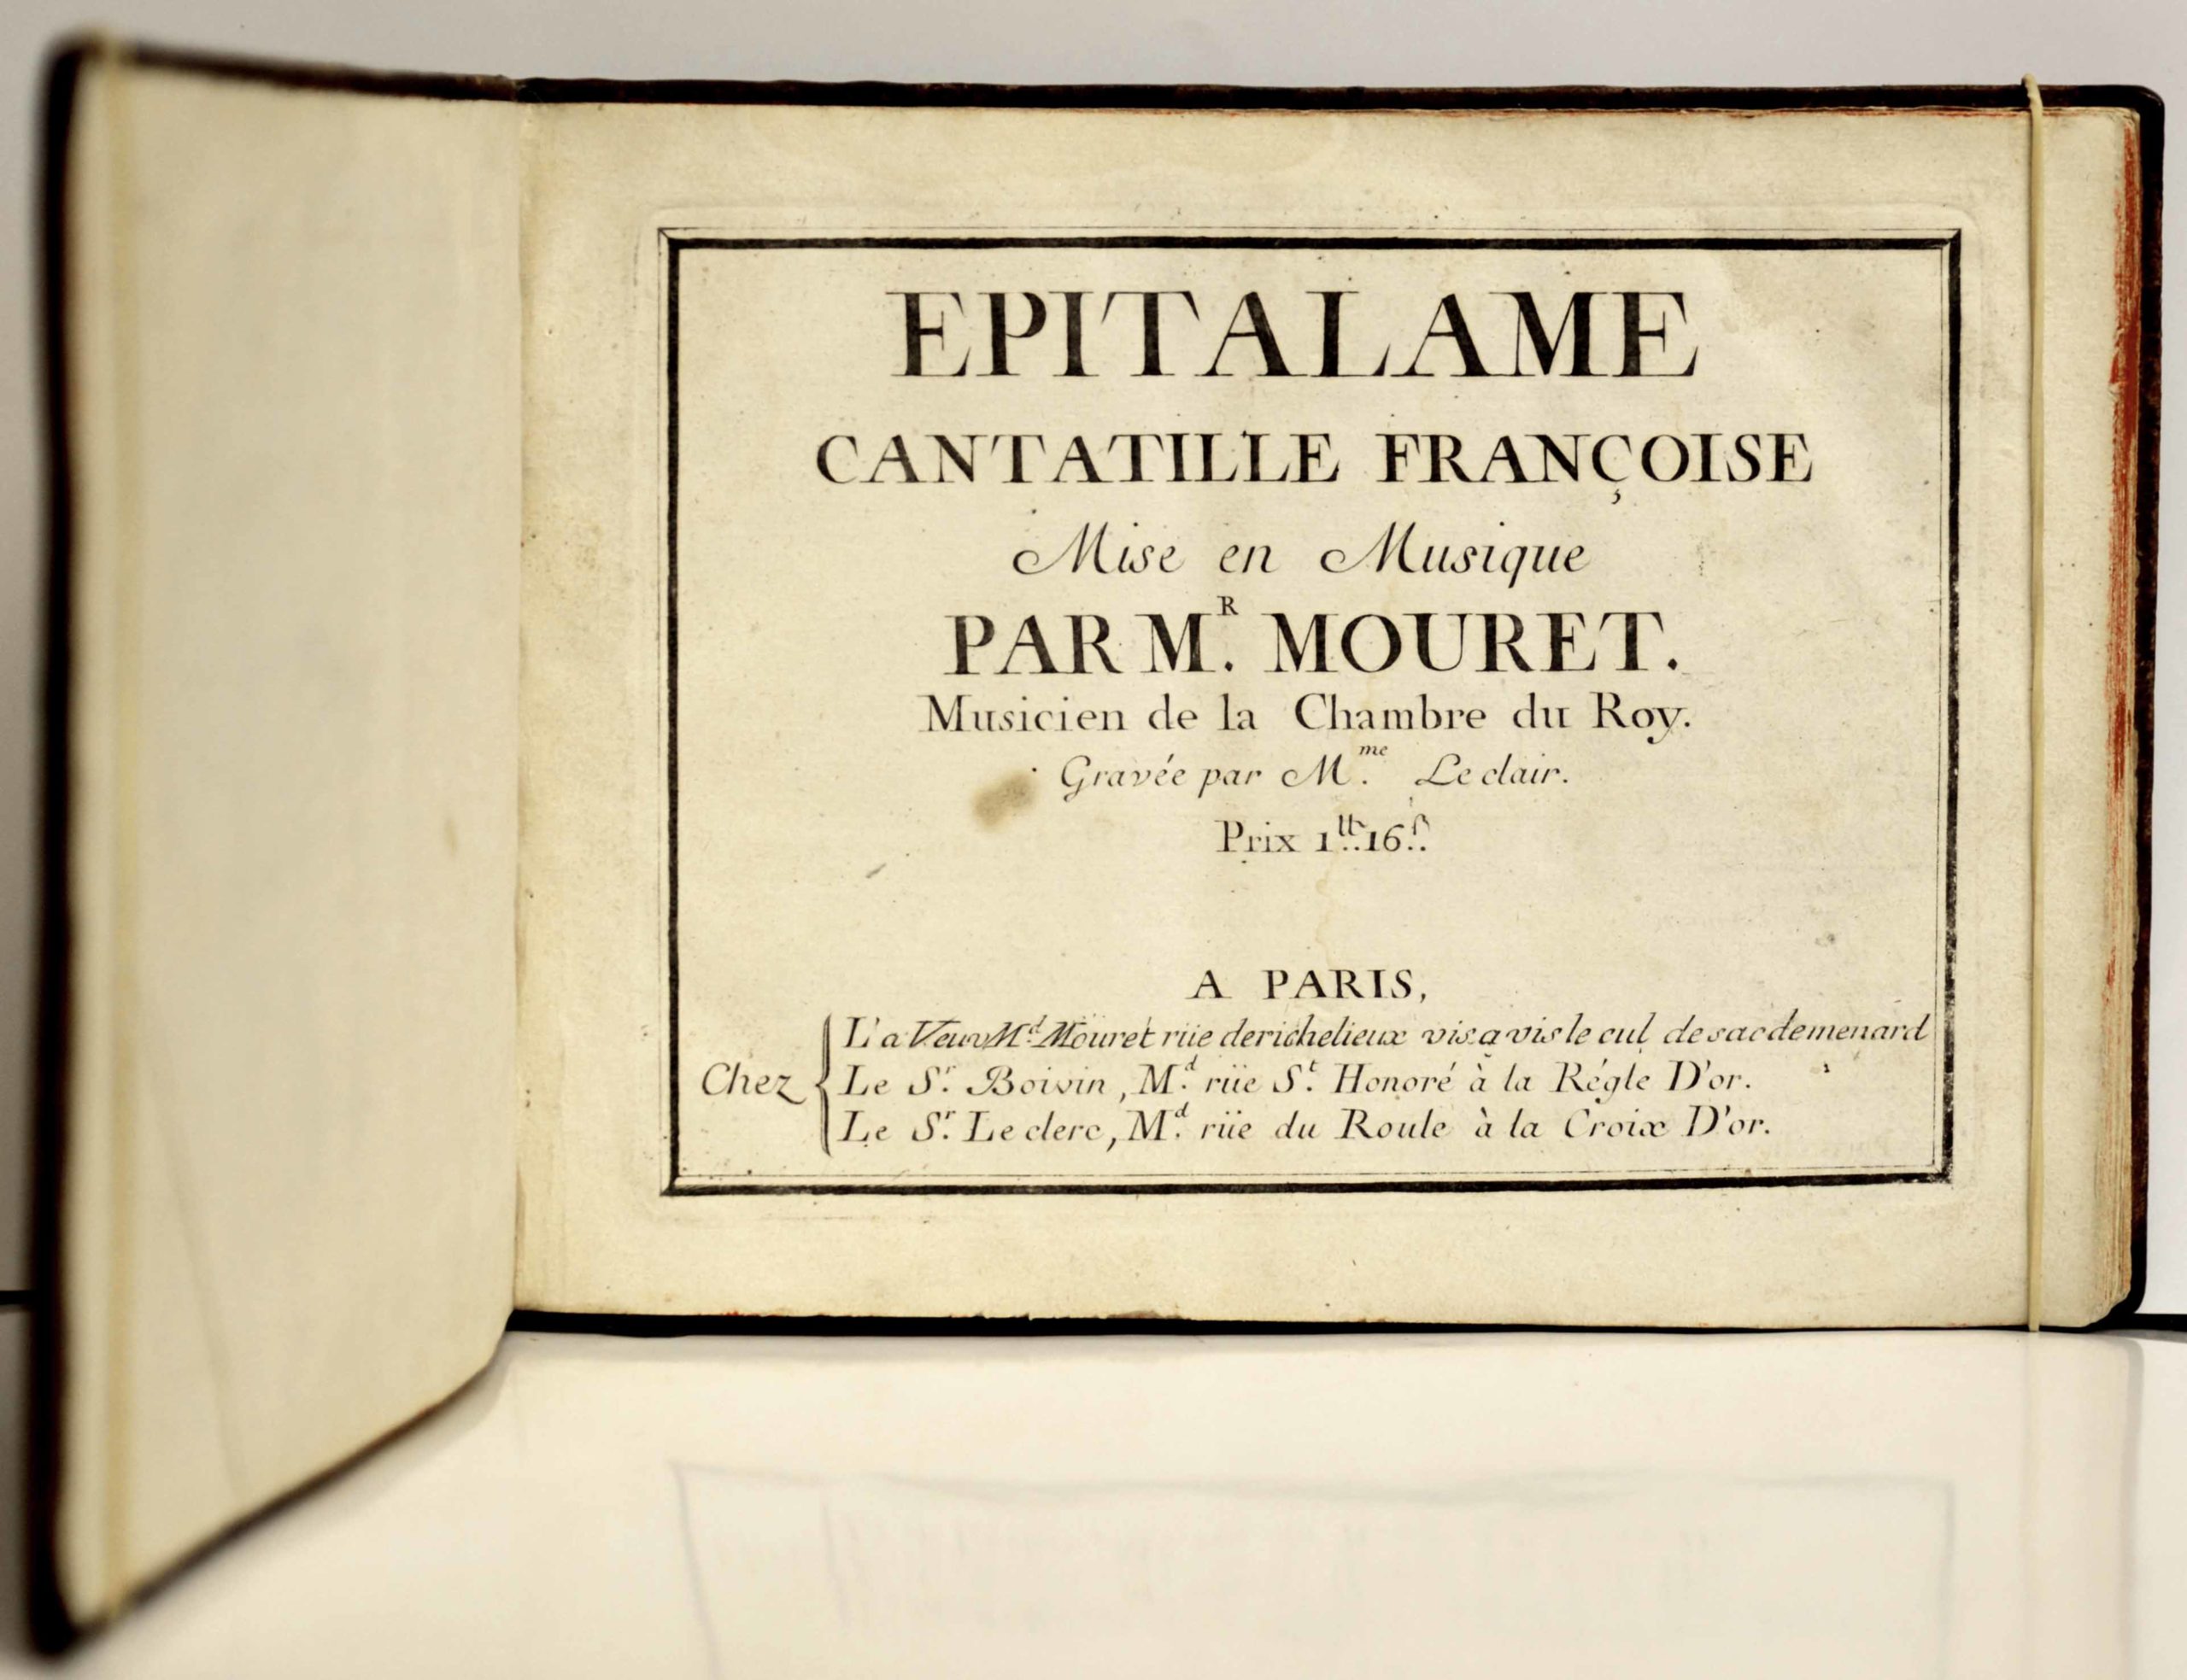 EPITALAME
CANTATILLE FRANÇOISE
Mise en Musique
PAR M.R MOURET.
Musicien de la Chambre du Roy.
Gravée par M.me Le clair.
Prix 1.tt 16.ſ
A PARIS,
Chez
La Veuv M.d Mouret rüe derichelieux vis a vis le cul de sac demenard
Le S.r Boivin, M.d rüe S.t Honoré à la Régle D'or.
Le S.r Le clerc, M.d rüe du Roule à la Croix D'or.